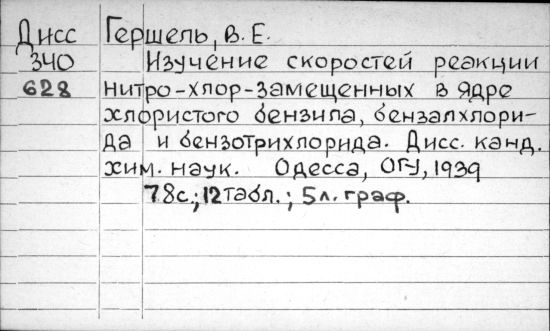 Дисс Гершель, В. Е.
340 Изучение скоростей реакции
628 нитро-хлор-замещенных в ядре
хлористого бензила, бензалхлори-
да и бензотрихлорида. Дисс. канд.
хим. наук. Одесса, ОГУ, 1939
78с.; 12 табл.; 5 л. граф.